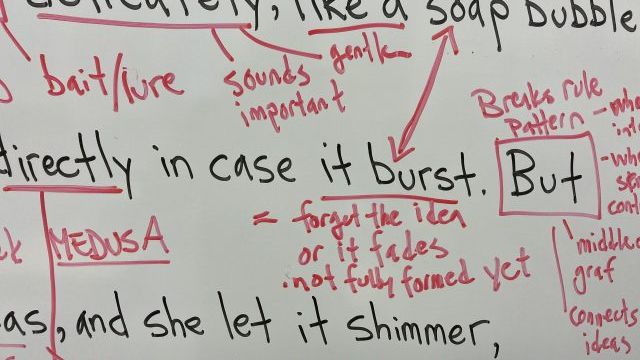 delicately, like a soap bubble
bait/lure
sounds
important
gentle
Breaks rule
pattern
directly in case it burst. But
MEDUSA
= forget the idea
or it fades
. not fully formed yet
middle
graf
connects
ideas
as, and she let it shimmer,